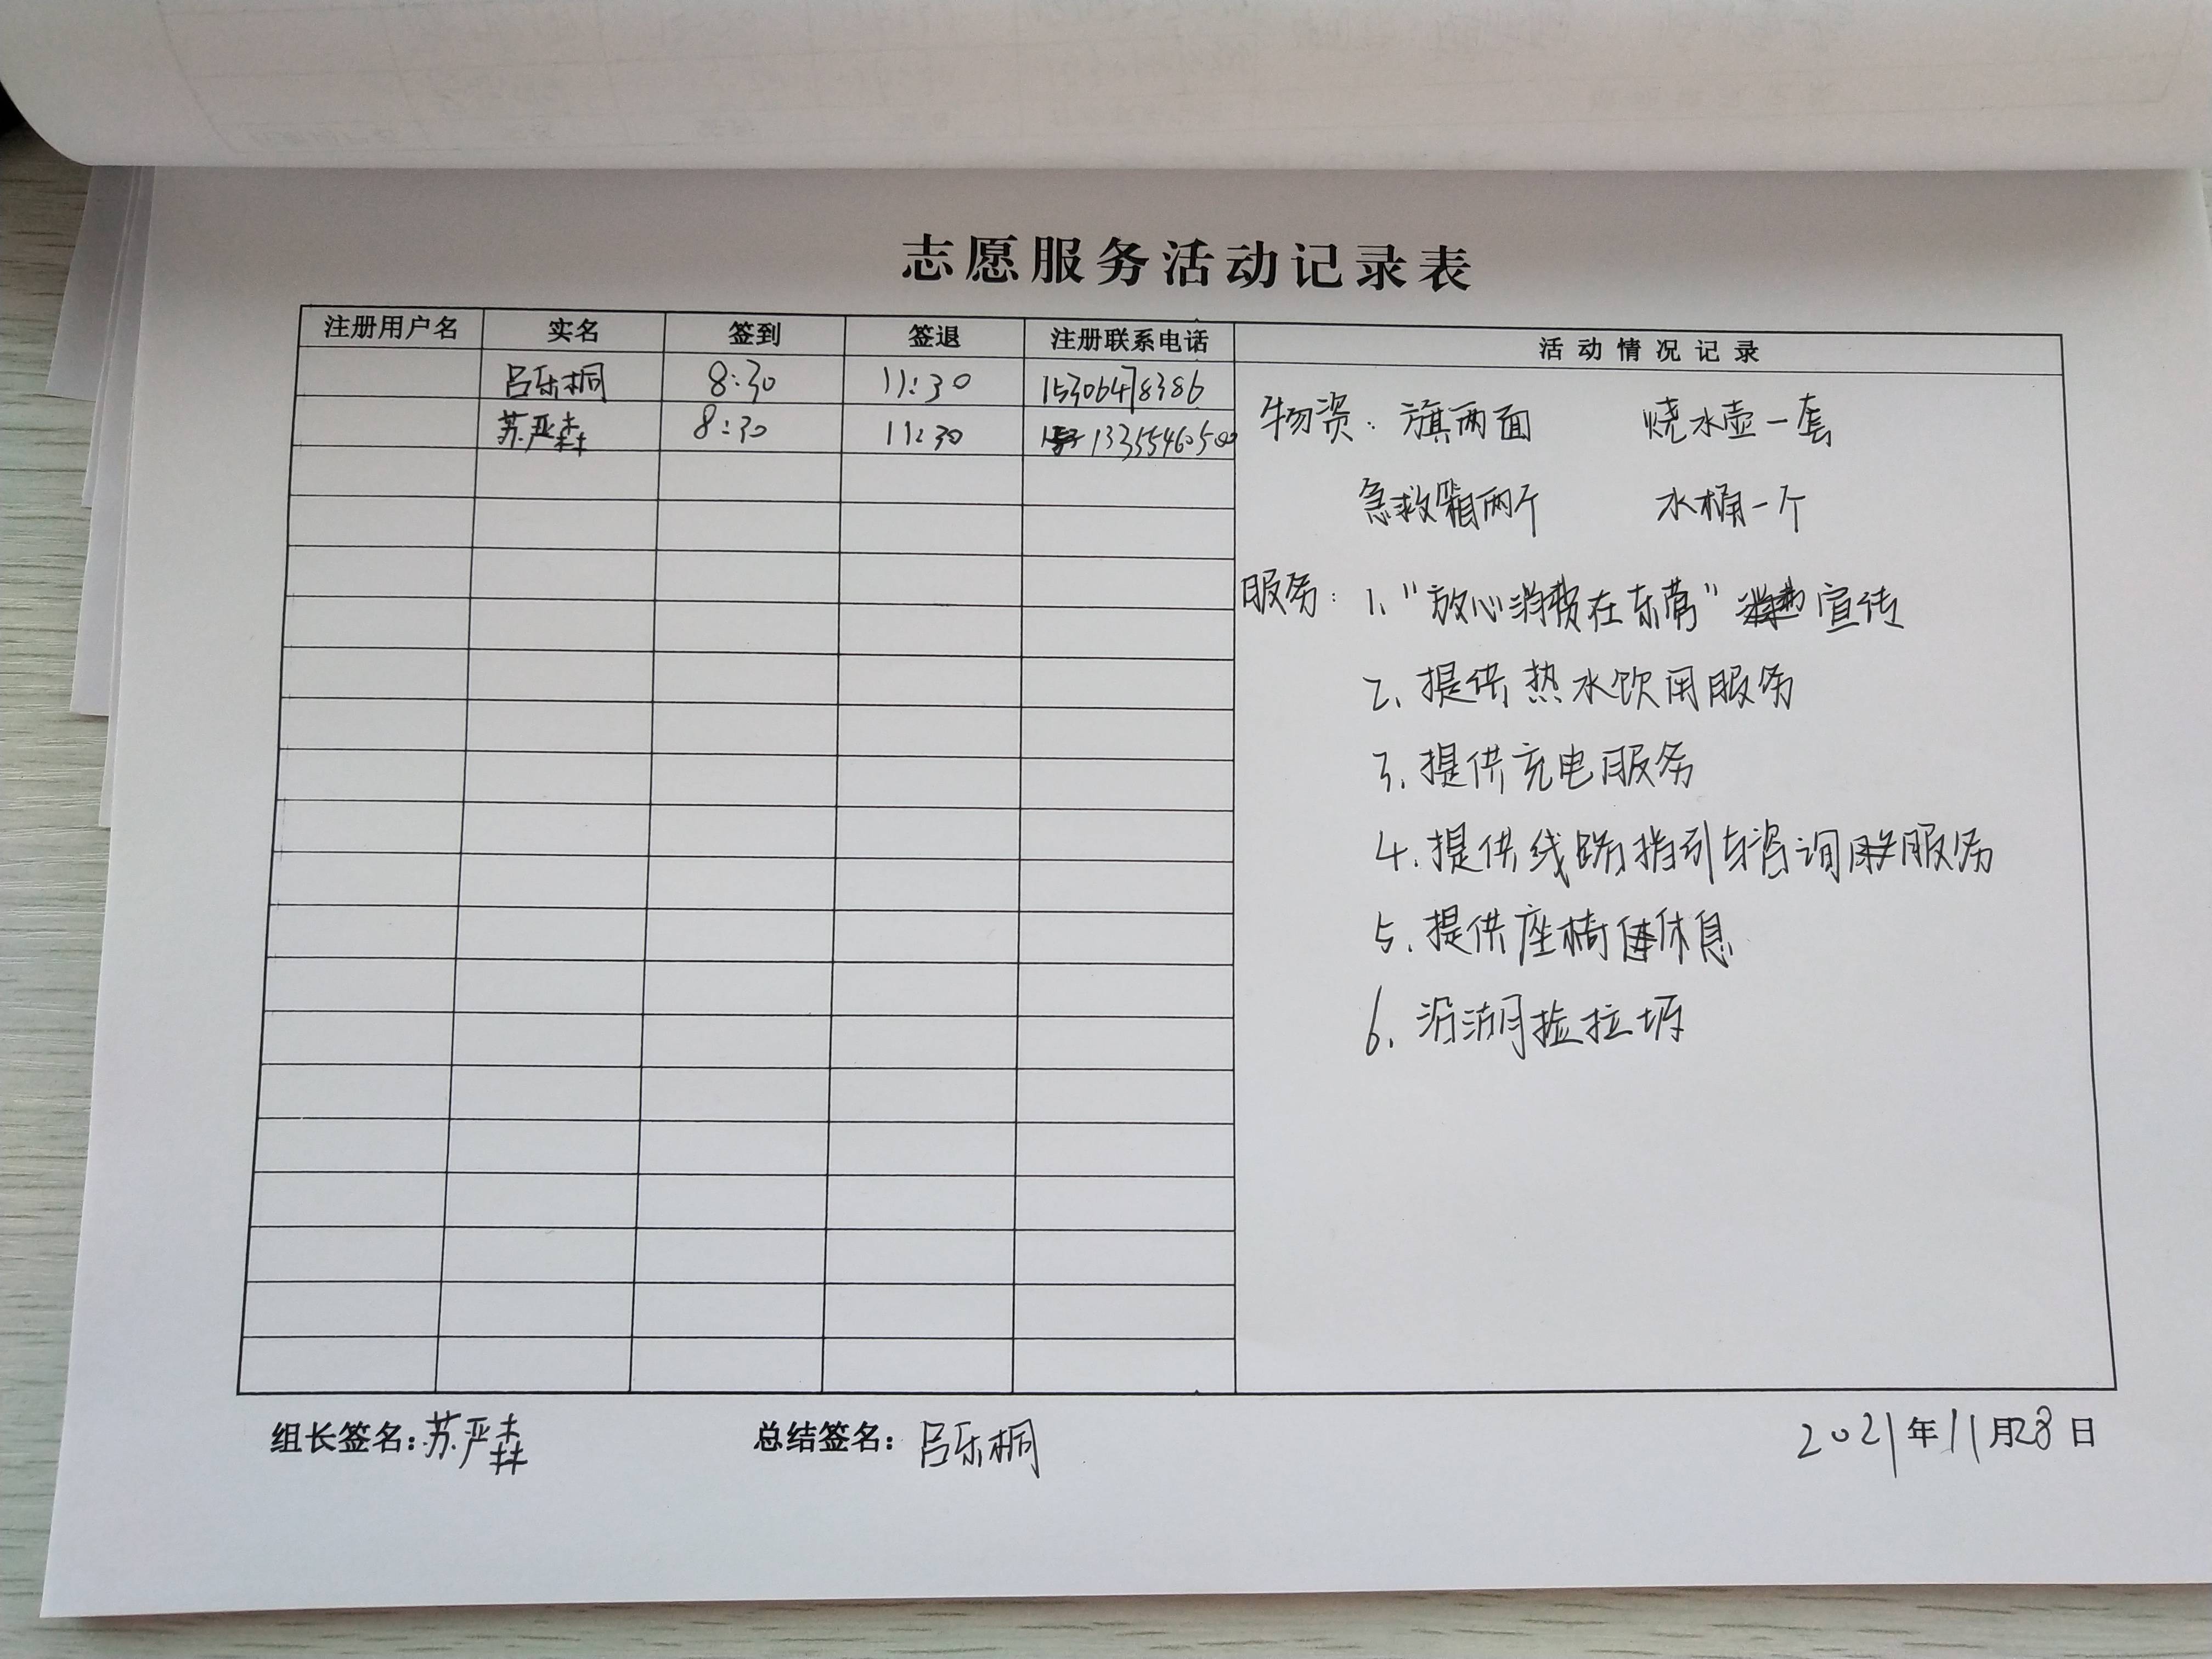 志愿服务活动记录表
注册用户名 实名 签到 签退 注册联系电话 活动情况记录
吕乐桐 8:30 11:30 15306478386
苏严森 8:30 11:30 13355460500
物资：旗两面 烧水壶一套
急救箱两个 水桶一个
服务：1、“放心消费在东营” 宣传
2、提供热水饮用服务
3、提供充电服务
4、提供线路指引与咨询服务
5、提供座椅休息
6、沿湖捡垃圾
组长签名：苏严森 总结签名：吕乐桐 2021年11月28日